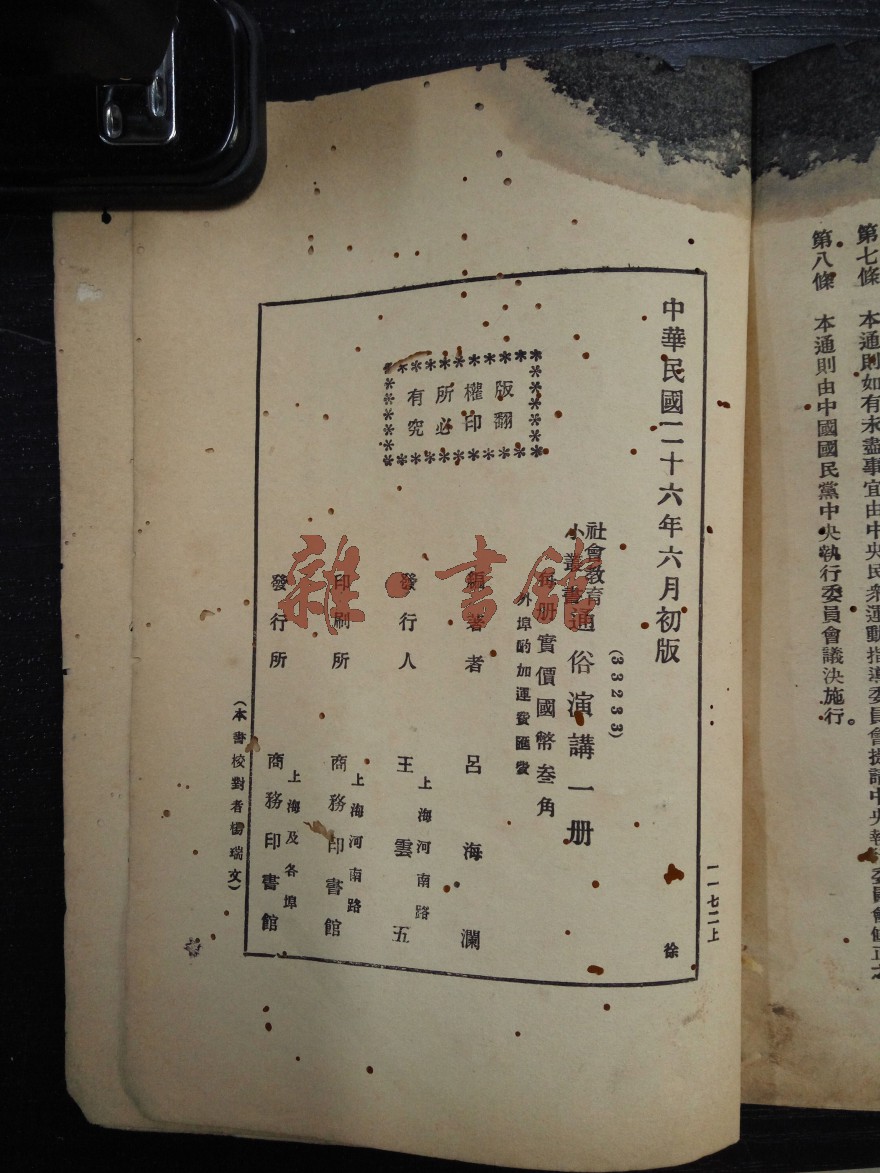 第七條　本通則如有未盡事宜由中央民衆運動指導委員會提請中央執行委員會修正之
第八條　本通則由中國國民黨中央執行委員會議決施行。
一一七二上
中華民國二十六年六月初版
徐
(33233)
社會教育
小叢書
通俗演講一册
每册實價國幣叁角
外埠酌加運費匯費
版權所有
翻印必究
編著者　呂海瀾
發行人　王雲五
上海河南路
印刷所　商務印書館
上海河南路
發行所　商務印書館
上海及各埠
(本書校對者楊瑞文)
雜·書館